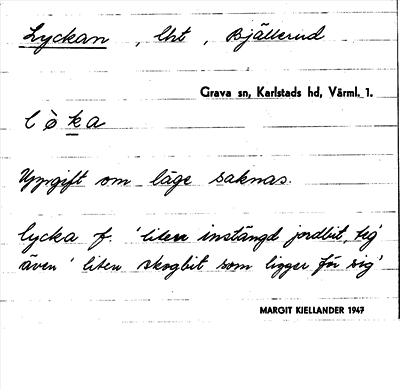 Lyckan, lht, Bjällerud
Grava sn, Karlstads hd, Värml. l.
l ò k a
Uppgift om läge saknas.
lycka f. 'liten instängd jordbit, teg'
även 'liten skogbit som ligger för sig'
MARGIT KIELLANDER 1947